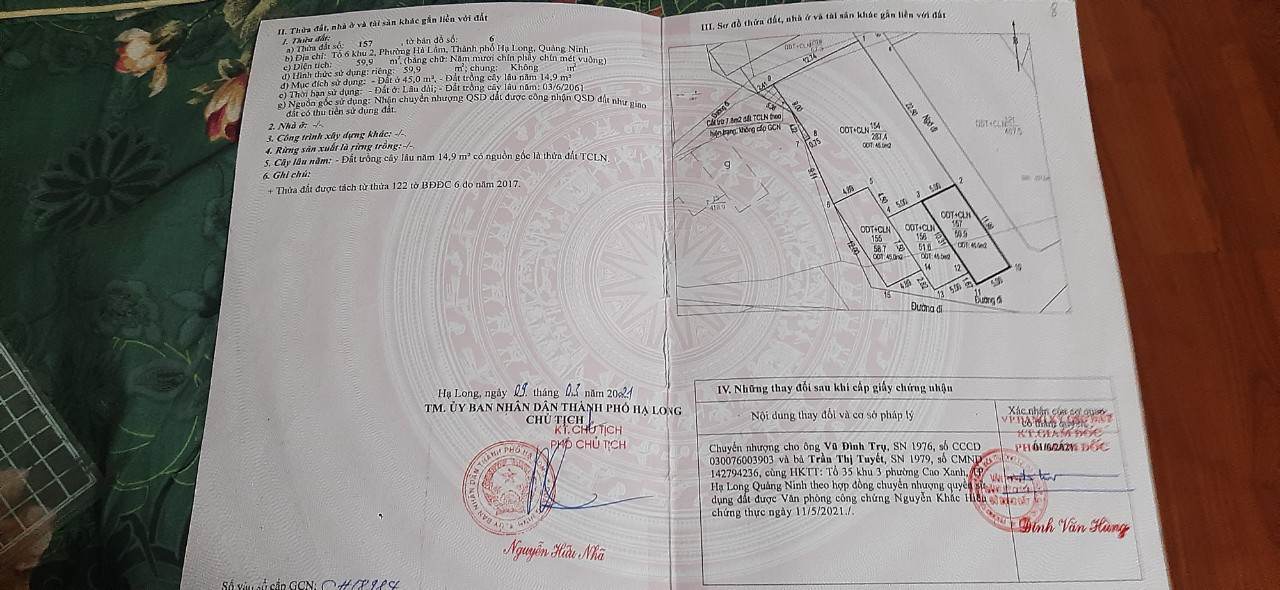 II. Thửa đất, nhà ở và tài sản khác gắn liền với đất
1. Thửa đất:
a) Thửa đất số: 157 , tờ bản đồ số: 6
b) Địa chỉ: Tổ 6 khu 2, Phường Hà Lầm, Thành phố Hạ Long, Quảng Ninh
c) Diện tích: 59,9 m², (bằng chữ: Năm mươi chín phẩy chín mét vuông)
d) Hình thức sử dụng: riêng: 59,9 m²; chung: Không m²
đ) Mục đích sử dụng: - Đất ở 45,0 m², - Đất trồng cây lâu năm 14,9 m²
e) Thời hạn sử dụng: - Đất ở: Lâu dài; - Đất trồng cây lâu năm: 03/6/2061
g) Nguồn gốc sử dụng: Nhận chuyển nhượng QSD đất được công nhận QSD đất như giao
đất có thu tiền sử dụng đất.
2. Nhà ở: -/-
3. Công trình xây dựng khác: -/-
4. Rừng sản xuất là rừng trồng: -/-
5. Cây lâu năm: - Đất trồng cây lâu năm 14,9 m² có nguồn gốc là thửa đất TCLN.
6. Ghi chú:
+ Thửa đất được tách từ thửa 122 tờ BĐĐC 6 đo năm 2017.
Hạ Long, ngày 09 tháng 03 năm 2021
TM. ỦY BAN NHÂN DÂN THÀNH PHỐ HẠ LONG
CHỦ TỊCH
KT. CHỦ TỊCH
PHÓ CHỦ TỊCH
Nguyễn Hữu Nhã
Số vào sổ cấp GCN:
8
III. Sơ đồ thửa đất, nhà ở và tài sản khác gắn liền với đất
B
ODT+CLN
12.74
22.50
Ngõ đi
ODT+CLN
407.5
8.00
Cắt trừ 7.8m2 đất TCLN theo
hiện trạng, không cấp GCN
8
0.75
7
ODT+CLN 154
287.4
9.11
g
5
4.89
6
3
5.00
2
4
5.00
12.00
11.99
ODT+CLN
155
58.7
ODT: 45.0m2
ODT+CLN
156
51.6
ODT: 45.0m2
ODT+CLN
157
59.9
ODT: 45.0m2
10.31
14
12
10
15
4.89
13
5.00
11
5.00
Đường đi
Đường đi
IV. Những thay đổi sau khi cấp giấy chứng nhận
Nội dung thay đổi và cơ sở pháp lý
Xác nhận của cơ quan
có thẩm quyền
KT.GIÁM ĐỐC
PHÓ GIÁM ĐỐC
01/6/2021
Chuyển nhượng cho ông Vũ Đình Trụ, SN 1976, số CCCD
030076003903 và bà Trần Thị Tuyết, SN 1979, số CMND
142794236, cùng HKTT: Tổ 35 khu 3 phường Cao Xanh,
Hạ Long Quảng Ninh theo hợp đồng chuyển nhượng quyền sử
dụng đất được Văn phòng công chứng Nguyễn Khắc Hiếu
chứng thực ngày 11/5/2021./.
Đinh Văn Hùng